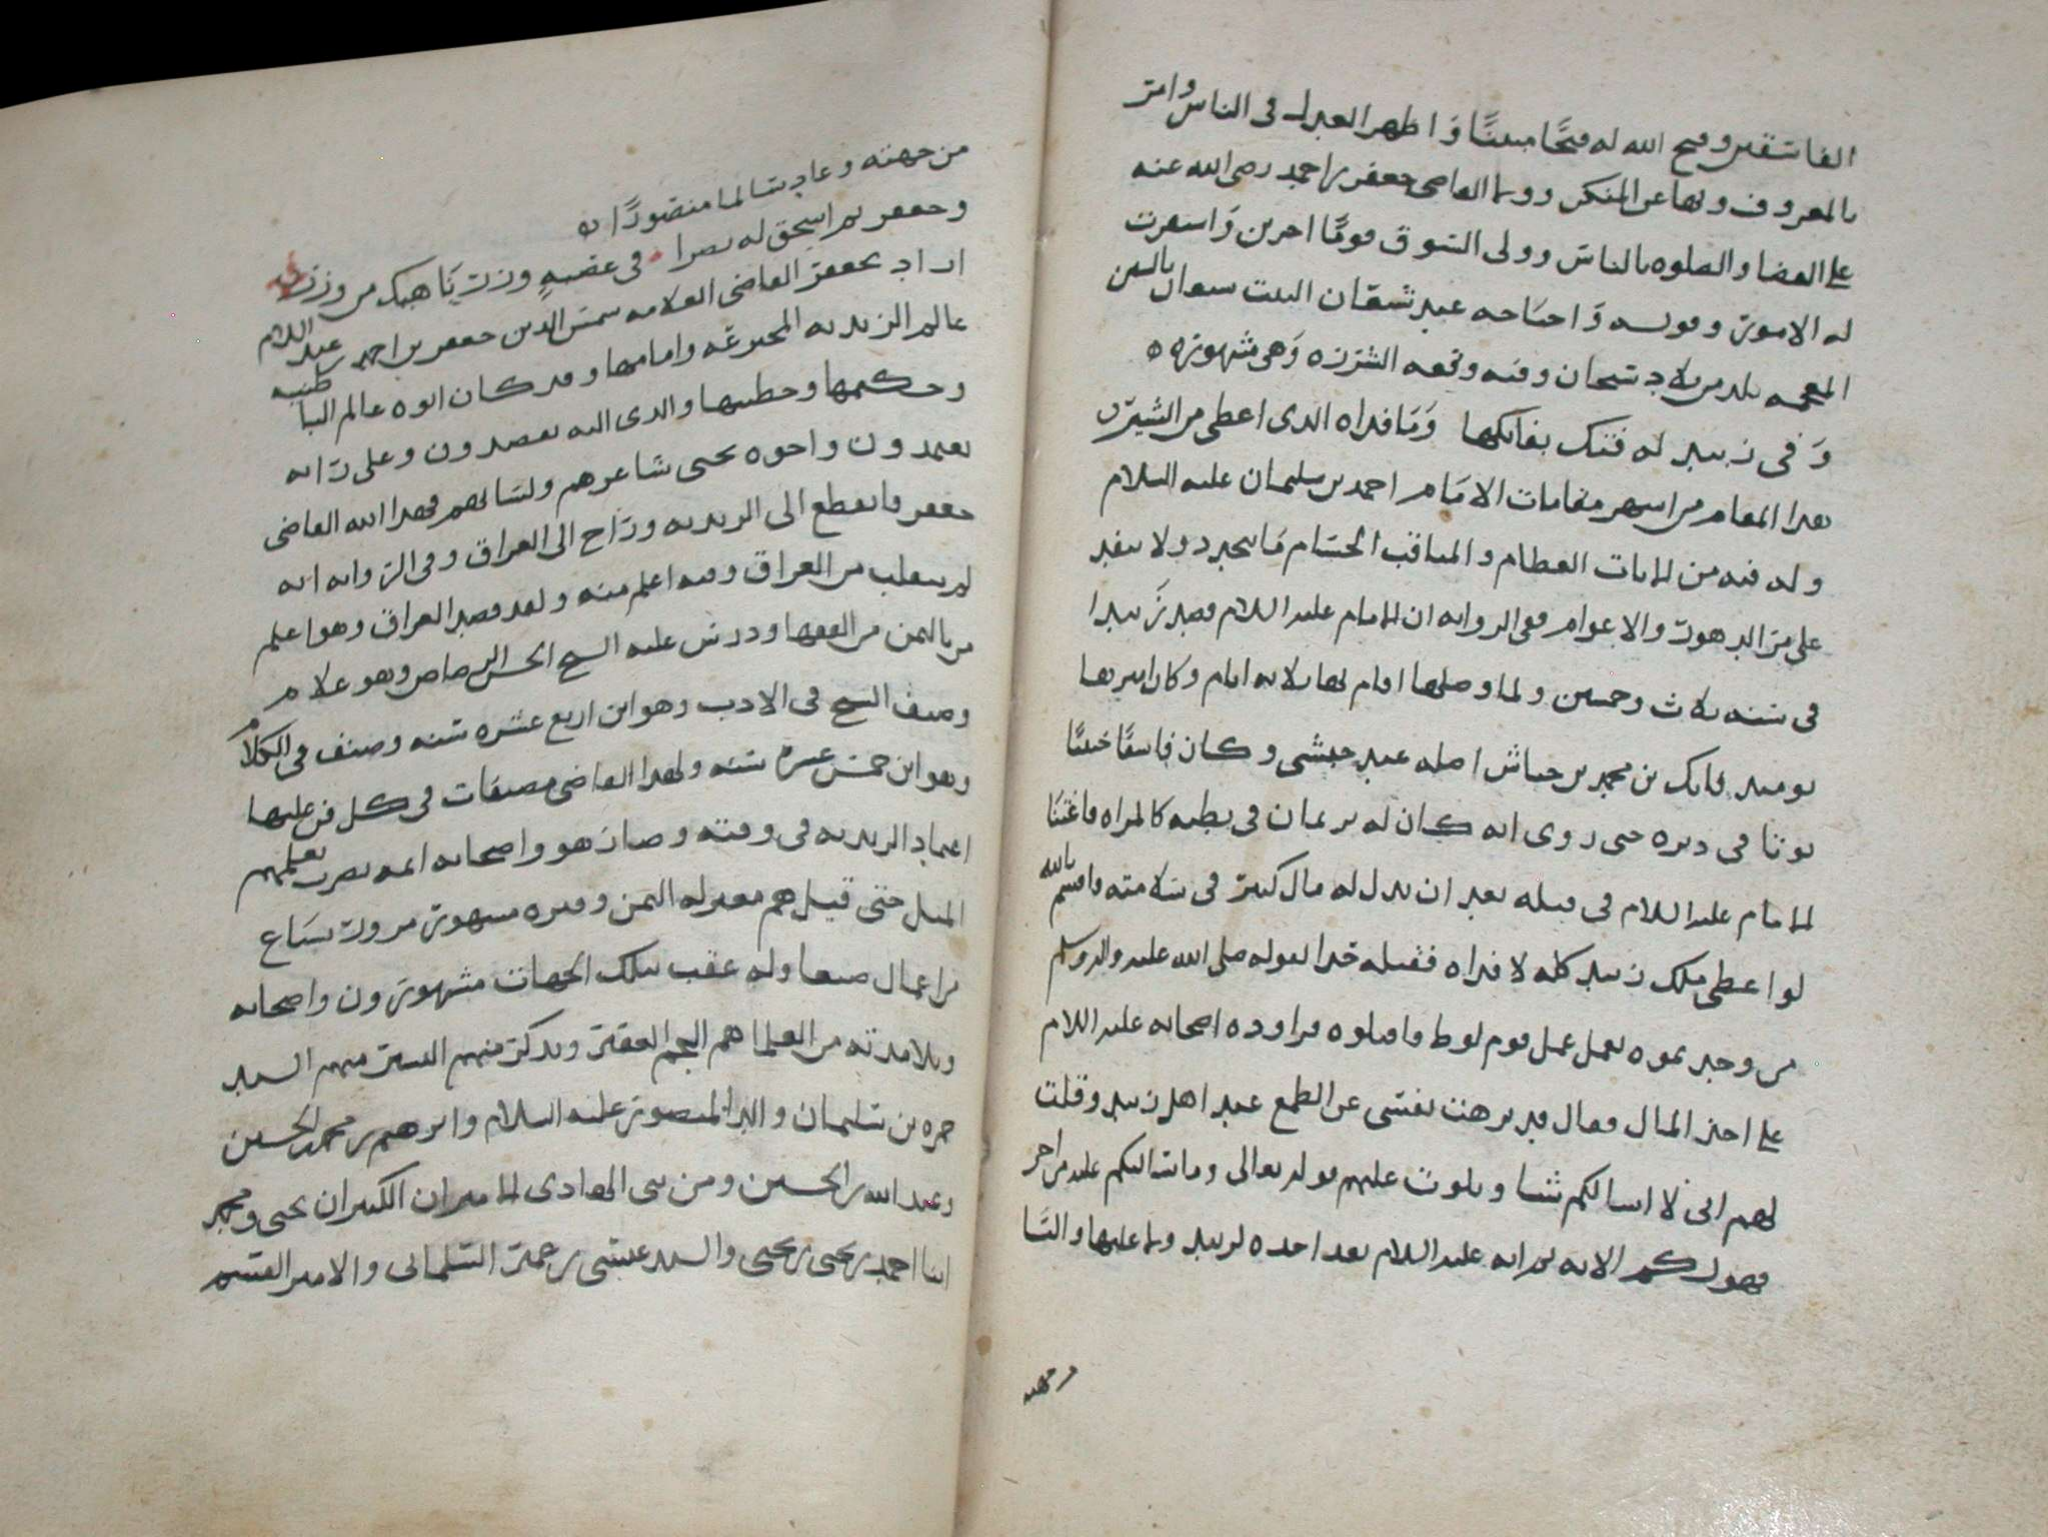 الفاسقين وفتح الله له فتحًا مبينًا وَاظهر العدل في الناس وامر
بالمعروف ونها عن المنكر وولا القاضي جعفر بن احمد رضي الله عنه
على القضا والصلوه بالناس وولى السوق قومًا اخرين وَاستقرت
له الامور وقوله
المعجمه بلد من بلاد سنحان وفيه وقعه الشرزه وَهي مشهوره
وَفي زبيد له فتك بفاتكها وَمَا فداه الذي اعطى من الشبر
هذا المقام من اشهر مقامات الامَام احمد بن سليمان عليه السلام
وله فيه من الايات العظام والمناقب الجسَام مَا يتجدد ولا ينفد
على مر الدهور والاعوام ففي الروايه ان الامام عليه السلام قصد زَبيدا
في سنه ثلاث وخمسين ولما وصلها اقام بها ثلاثه ايام وكان اميرها
يوميد فاتك بن محمد بن جياش اصله عبد حبشي وكان فاسقًا خبيثًا
يوتا في دبره حتى روى انه كان له رمان في بطنه كالمراه
الامام عليه السلام في قتله بعد ان بذل له مال كثير في سلامته واقسم بالله
لو اعطى ملك زبيد كله لا فداه فقتله حدا لقوله صلى الله عليه واله وسلم
من وجدتموه يعمل عمل قوم لوط فاقتلوه فراوده اصحابه عليه السلام
على اخذ المال فقال قد نزهت نفسي عن الطمع عند اهل زبيد وقلت
لهم اني لا اسالكم شيا وتلوت عليهم قوله تعالى وما اسالكم عليه من اجر
فهو لكم الايه ثم انه عليه السلام بعد اخذه لزبيد
من جهته
من جهته وعاد سَالما منصورًا
وجعفر ثم اسحق له نصرا في عصبهٍ وزر نَاهيك من وزر
اراد بجعفر القاضي العلامه شمس الدين جعفر بن احمد بن عبد السلام
عالم الزيديه المخترعه وامامها وقد كان ابوه عالم الباطنيه
وحكيمها وخطيبها والذي اليه يقصدون وعلى رايه
يعتمدون واخوه يحيى شاعرهم ولسَانهم فهدا الله القاضي
جعفر فانقطع الى الزيديه ورَاح الى العراق وفي الروايه انه
لم ينقلب من العراق وفيه اعلم منه ولقد قصد العراق وهو اعلم
من باليمن من الفقها ودرس عليه الشيخ الحسن الرصاص وهو غلام
وصنف الشيخ في الادب وهو ابن اربع عشره سنه وصنف في الكلام
وهو ابن خمس عشره سنه ولهذا القاضي مصنفات في كل فن عليها
اعتماد الزيديه في وقته وصار هو واصحابه ايمه يضرب بعلمهم
المثل حتى قيل هم معتزله اليمن وقبره مشهور
من اعمال صنعا وله عقب بتلك الجهات مشهورون واصحابه
وتلامذته من العلما هم الجم الغفير ويذكر منهم اليسير منهم السيد
حمزه بن سليمان والد المنصور عليه السلام وابرهيم بن محمد الحسين
وعبد الله بن الحسين ومن بني الهادي الاميران الكبيران يحيى ومحمد
ابنا احمد بن يحيى بن يحيى والسيد عيسى بن حمزه السليماني والامير القسم